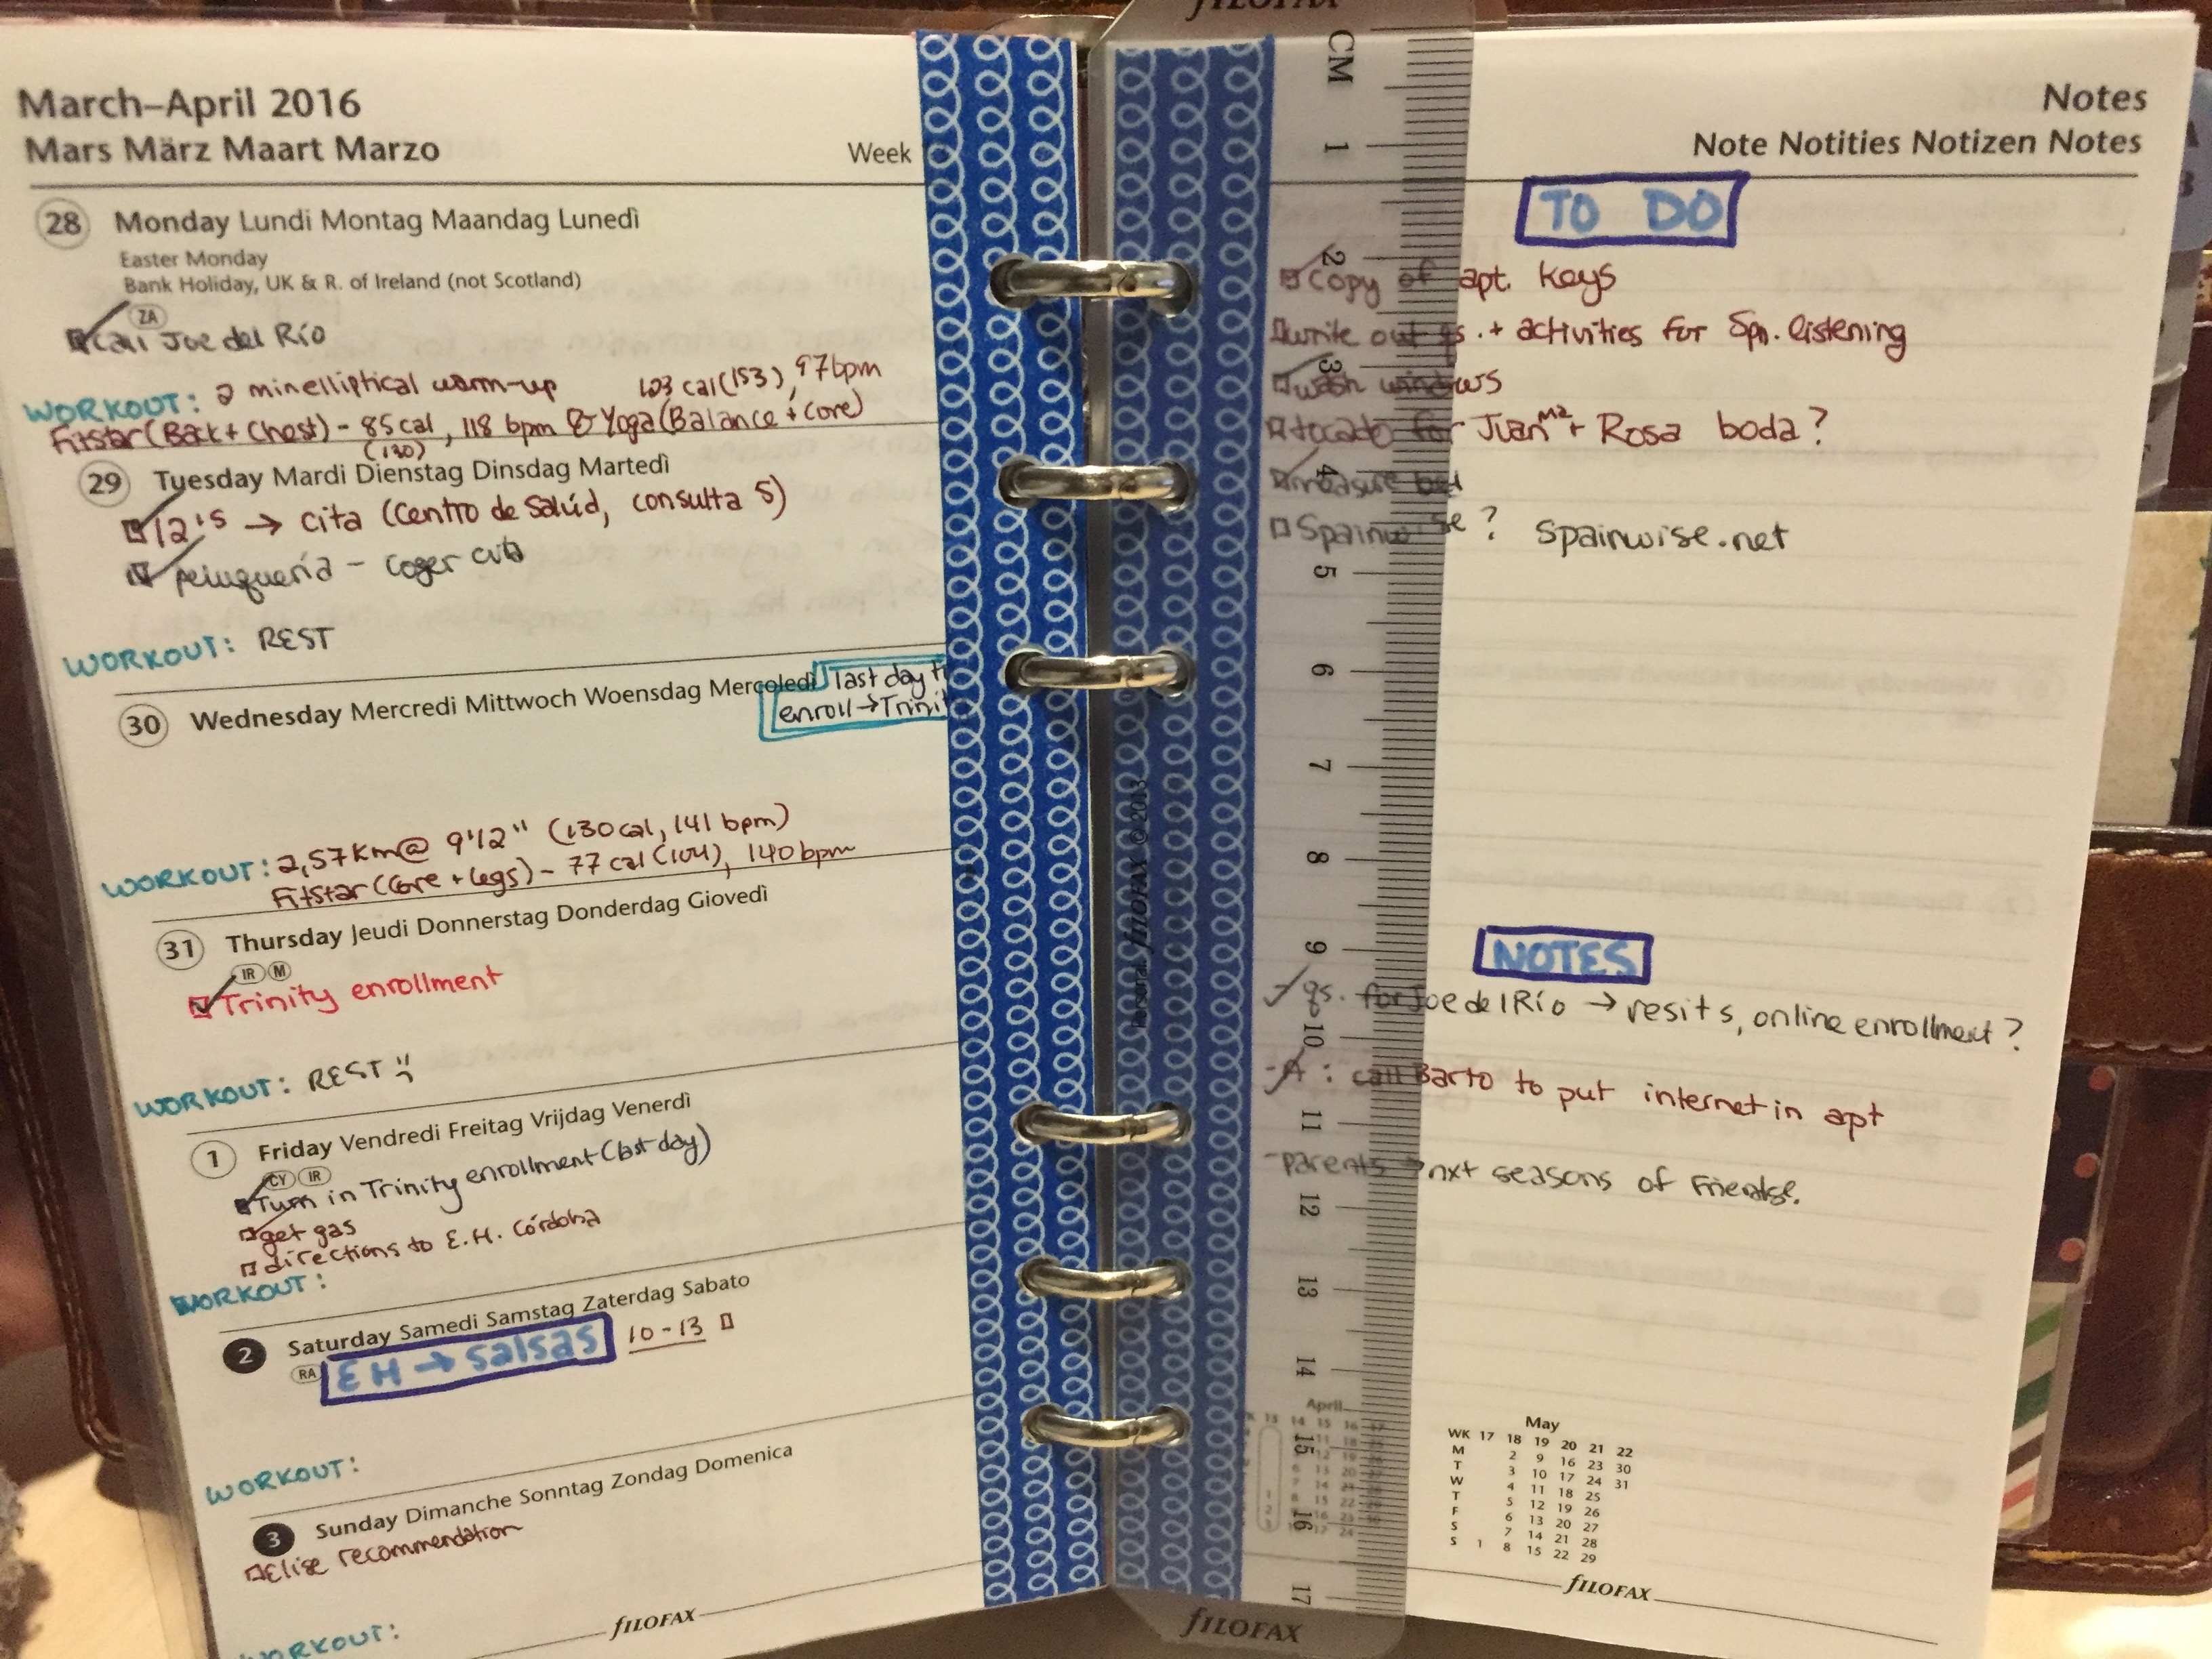 March–April 2016
Mars März Maart Marzo
Week
28 Monday Lundi Montag Maandag Lunedì
Easter Monday
Bank Holiday, UK & R. of Ireland (not Scotland)
ZA
Call Joe del Río
WORKOUT: 2 min elliptical warm-up 123 cal (153), 97 bpm
Fitstar (Back + Chest) - 85 cal, 118 bpm & Yoga (Balance + Core)
(130)
29 Tuesday Mardi Dienstag Dinsdag Martedì
12's → cita (Centro de Salúd, consulta 5)
peluquería - coger cita
WORKOUT: REST
30 Wednesday Mercredi Mittwoch Woensdag Mercoledì last day
enroll → Trini
WORKOUT: 2,57 Km @ 9'12" (130 cal, 141 bpm)
Fitstar (Core + Legs) - 77 cal (104), 140 bpm
31 Thursday Jeudi Donnerstag Donderdag Giovedì
IR M
Trinity enrollment
WORKOUT: REST
1 Friday Vendredi Freitag Vrijdag Venerdì
CY IR
Turn in Trinity enrollment (last day)
get gas
directions to E.H. Córdoba
WORKOUT:
2 Saturday Samedi Samstag Zaterdag Sabato
RA EH → Salsas 10-13
WORKOUT:
3 Sunday Dimanche Sonntag Zondag Domenica
Elise recommendation
WORKOUT:
fILOFAX
fILOFAX
CM
1
2
3
4
5
6
7
8
9
10
11
12
13
14
15
16
17
Personal fILOFAX © 2013
fILOFAX
Notes
Note Notities Notizen Notes
TO DO
copy of apt. keys
write out qs. + activities for Spn. listening
wash windows
tocado for Juan Mª + Rosa boda?
measure bed
Spainwise? spainwise.net
NOTES
qs. for Joe del Río → resits, online enrollment?
- A: call Barto to put internet in apt
- parents → nxt seasons of Friends.
April
May
WK 17 18 19 20 21 22
M 2 9 16 23 30
T 3 10 17 24 31
W 4 11 18 25
T 5 12 19 26
F 6 13 20 27
S 7 14 21 28
S 1 8 15 22 29
fILOFAX